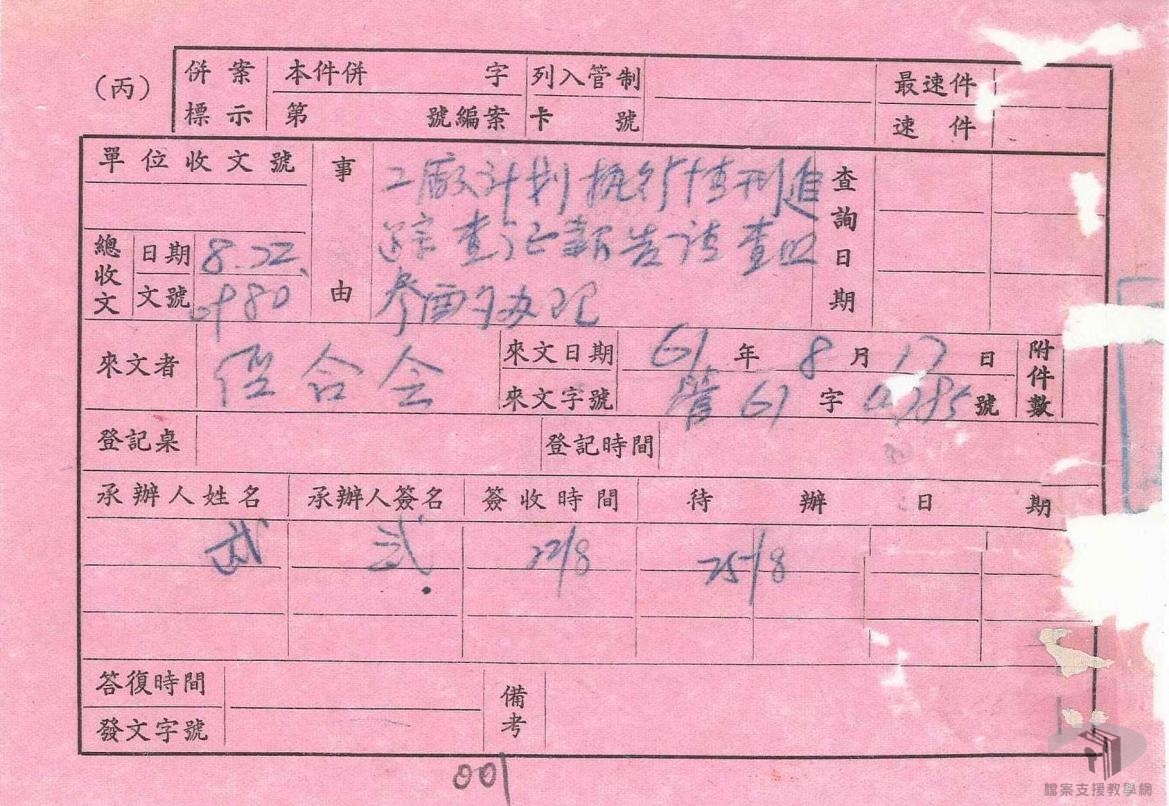 (丙)
併案 本件併 字 列入管制 最速件
標示 第 號編案 卡 號 速件
單位收文號 事 工廠计划执行情形追 查
踪查证報告请查照 詢
總收文 日期 8.22. 日
文號 由 参酉办理 期
來文者 經合会 來文日期 61年8月17日 附件數
來文字號 管61字 號
登記桌 登記時間
承辦人姓名 承辦人簽名 簽收時間 待辦日期
22/8 25/8
答復時間 備
發文字號 考
001
檔案支援教學網